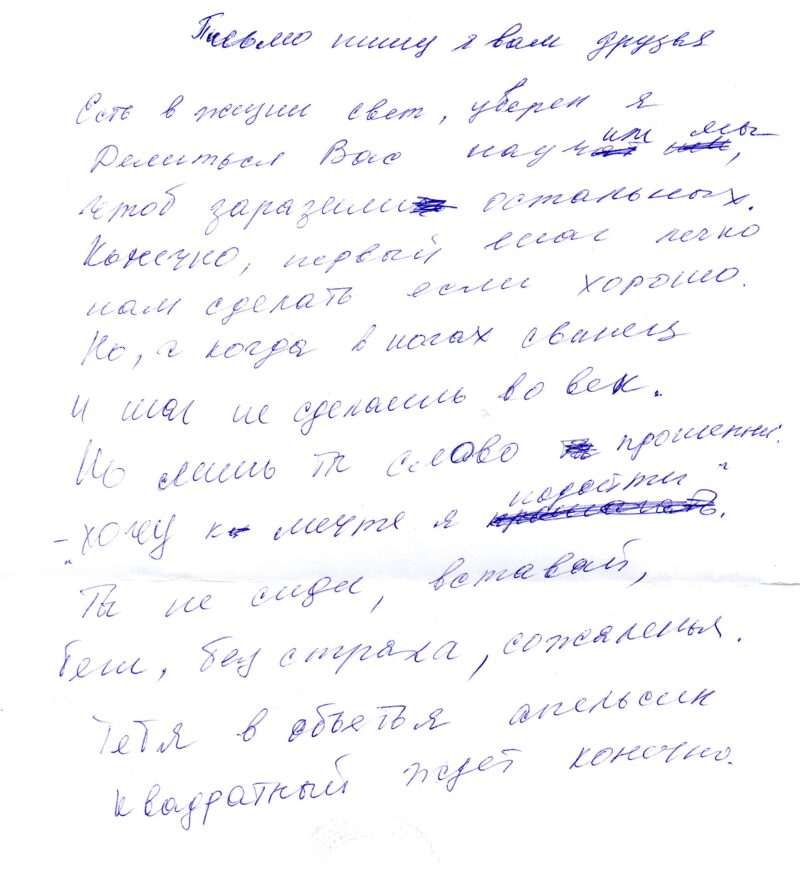 Письмо пишу я вам друзья
Есть в жизни свет, уверен я
Делиться Вас научим мы,
Чтоб заразили остальных.
Конечно, первый шаг легко
нам сделать если хорошо.
Но, а когда в ногах свинец
И шаг не сделаешь во век.
Но лишь ты слово прошепни.
- "Хочу к мечте я подойти".
Ты не сиди, вставай,
Беги, без страха, сожаленья.
Тетя в объетья апельсин
Квадратный ждет конечно.